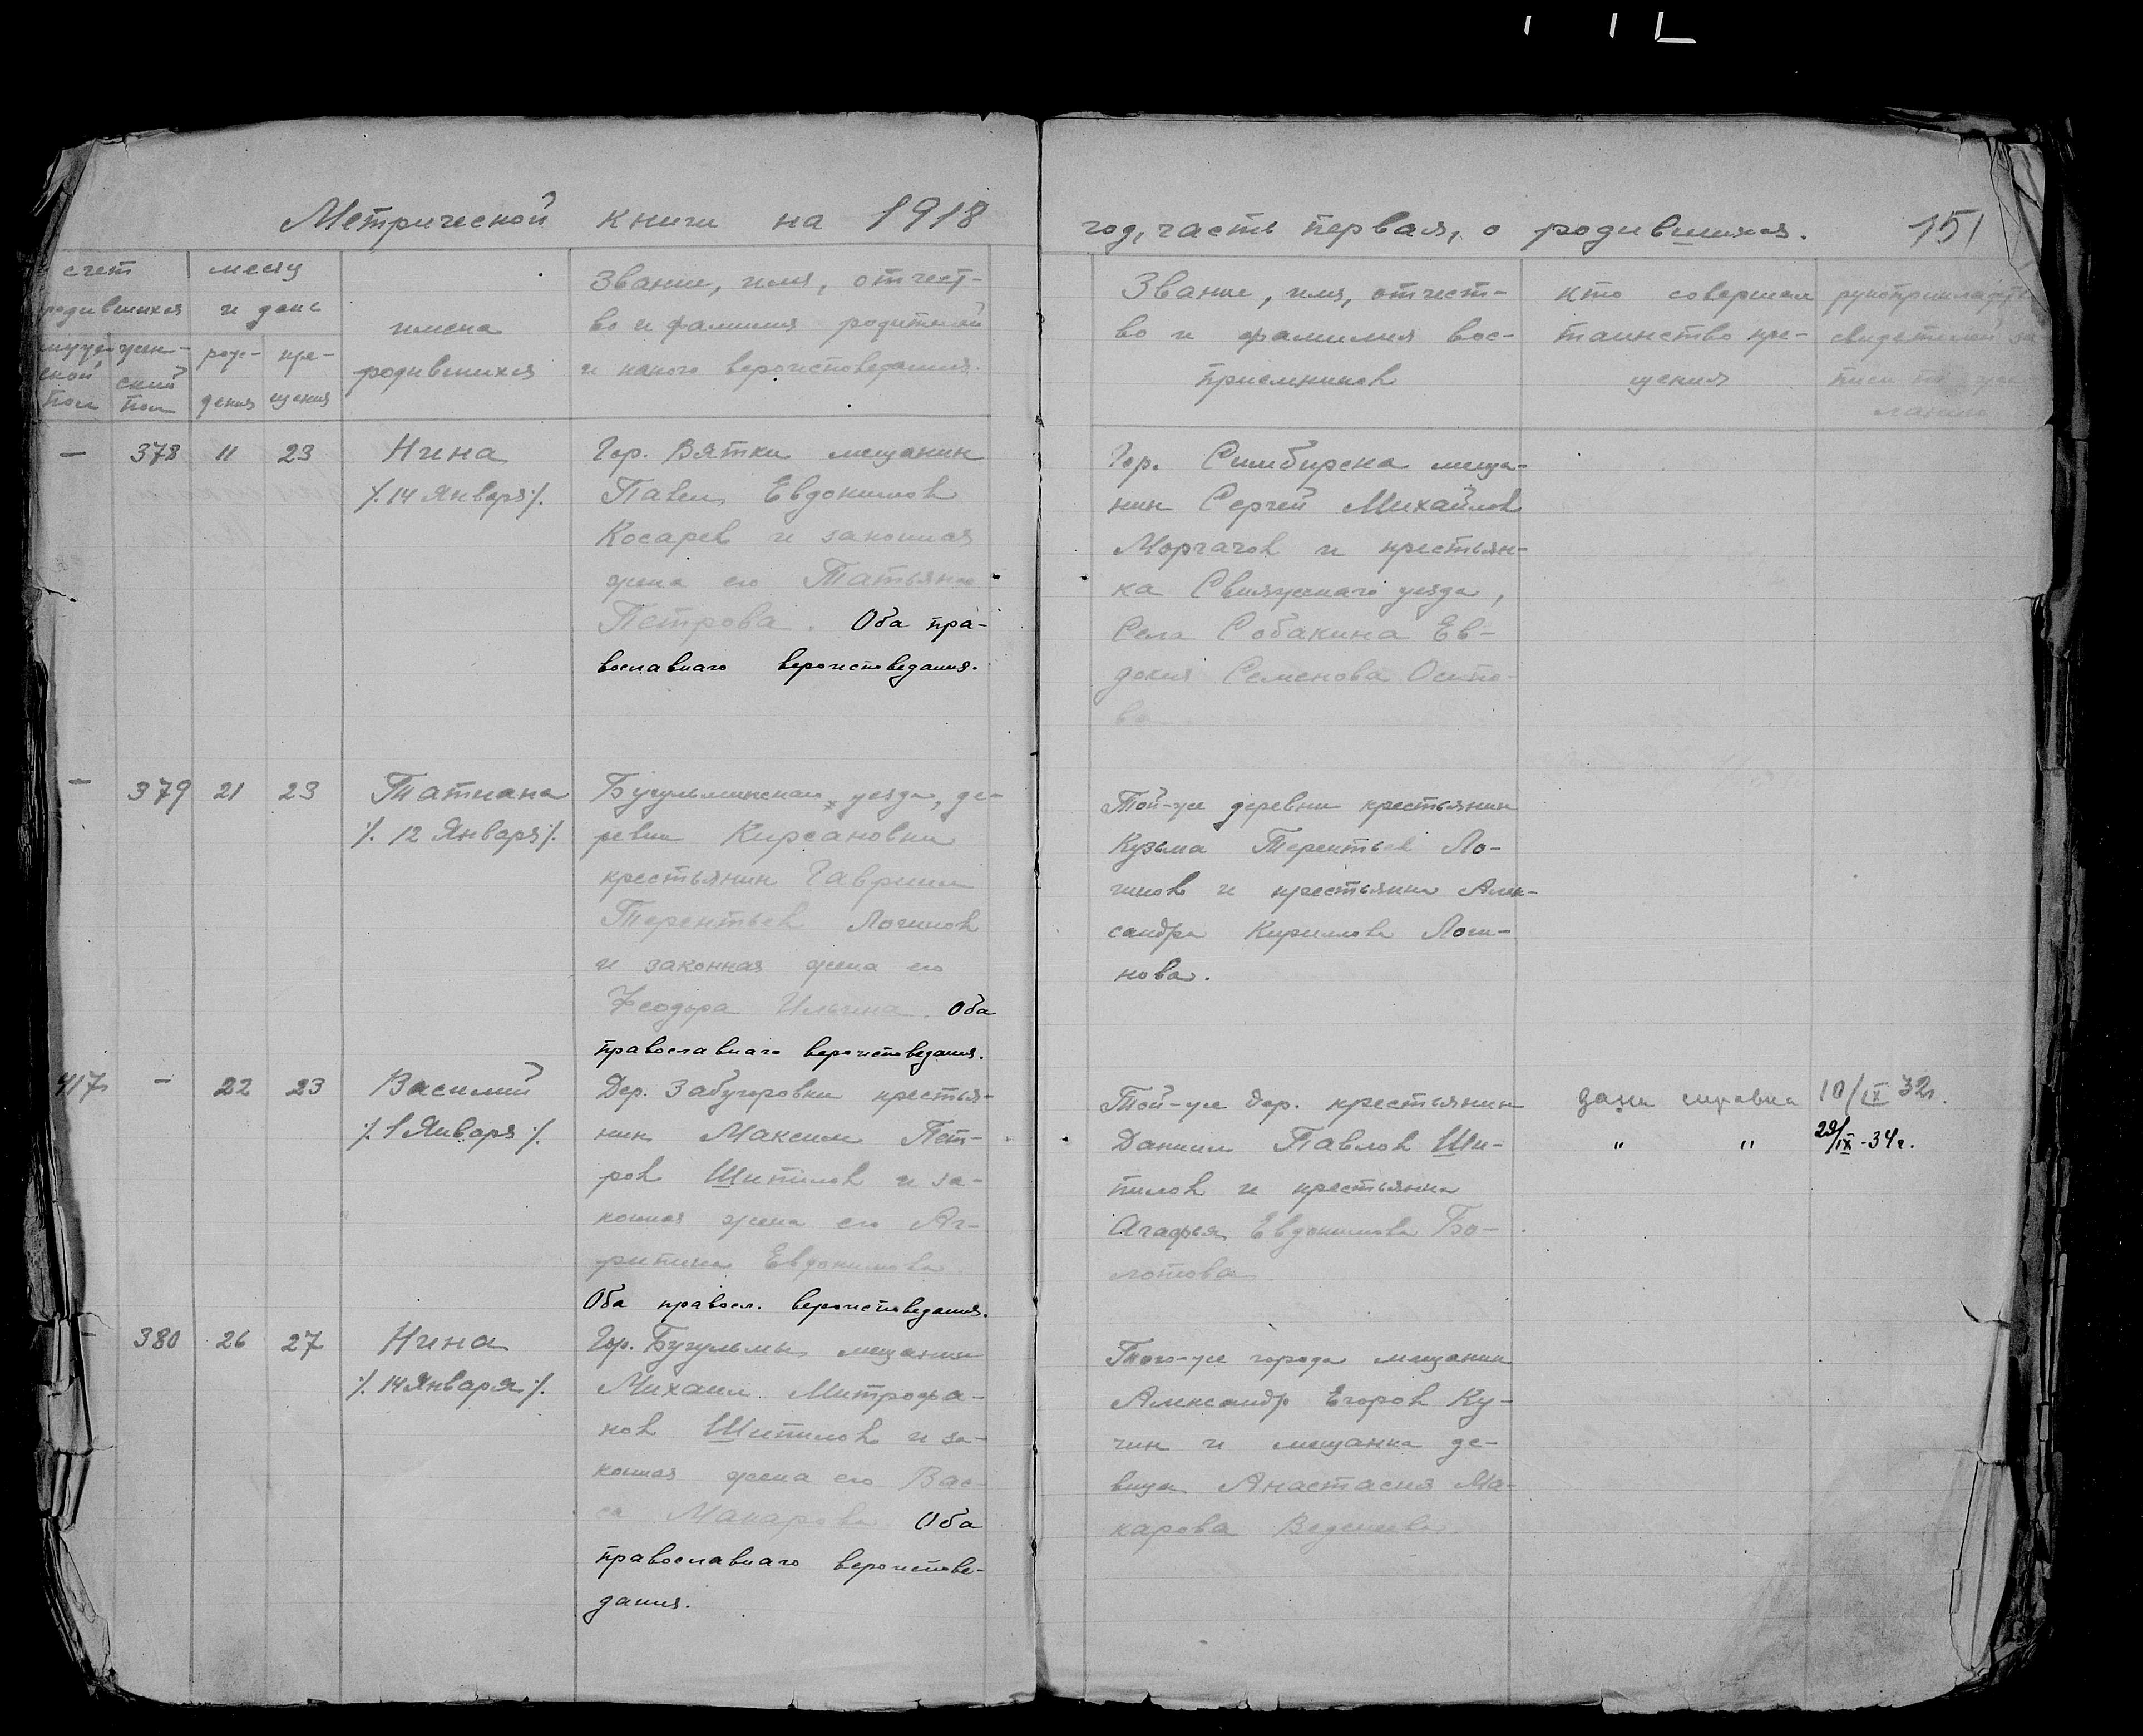 Метрической книги на 1918
год, часть первая, о родившихся. 151
счет
родившихся
мужской пол
женский пол
месяц
и день
рождения
крещения
имена
родившихся
Звание, имя, отчест-
во и фамилия родителей
и какого вероисповедания.
Звание, имя, отчест-
во и фамилия вос-
приемников
кто совершал
таинство кре-
щения
рукоприкладство
свидетелей за
писи по же
ланию
— 378 11 23
Нина
/. 14 Января /.
Гор. Вятки мещанин
Павел Евдокимов
Косарев и законная
жена его Татьяна
Петрова. Оба пра-
вославнаго вероисповедания.
Гор. Симбирска меща-
нин Сергей Михайлов
Моргачов и крестьян-
ка Свияжскаго уезда,
Села Собакина Ев-
докия Семенова Осипо-
ва
— 379 21 23
Татиана
/. 12 Января /.
Бугульминскаго уезда, де-
ревни Кирсановки
крестьянин Гавриил
Терентьев Логинов
и законная жена его
Феодора Ильина. Оба
православнаго вероисповедания.
Той-же деревни крестьянин
Кузьма Терентьев Ло-
гинов и крестьянка Алек-
сандра Кирилова Логи-
нова.
417 — 22 23
Василий
/. 1 Января /.
Дер. Забугоровки крестья-
нин Максим Пет-
ров Шипилов и за-
конная жена его Аг-
рипина Евдокимова
Оба правосл. вероисповедания.
Той-же дер. крестьянин
Даниил Павлов Ши-
пилов и крестьянка
Агафья Евдокимова Бо-
лотова
дана справка 10/IX 32г.
" " 29/IX-34г.
— 380 26 27
Нина
/. 14 Января /.
Гор. Бугульмы мещанин
Михаил Митрофа-
нов Шипилов и за-
конная жена его Вас-
са Макарова Оба
православнаго вероиспове-
дания.
Того-же города мещанин
Александр Егоров Ку-
чин и мещанка де-
вица Анастасия Ма-
карова Веденеева